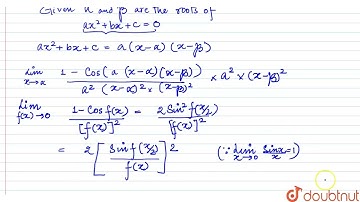 Given α and β are the roots of
ax² + bx + c = 0
ax² + bx + c = a (x-α) (x-β)
lim x→α 1 - Cos(a (x-α)(x-β)) / a² (x-α)² × (x-β)² × a² × (x-β)²
Lim f(x)→0 1-Cos f(x) / [f(x)]² = 2 Sin² f(x/2) / [f(x)]²
= 2 [ Sin f(x/2) / f(x) ]² (∵ lim x→0 Sinx/x = 1)
doubtnut